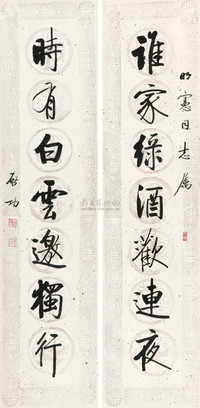 明憲同志屬
誰家綠酒歡連夜
時有白雲邀獨行
啟功